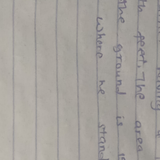 th feet. The area
the ground is 15
where he stand